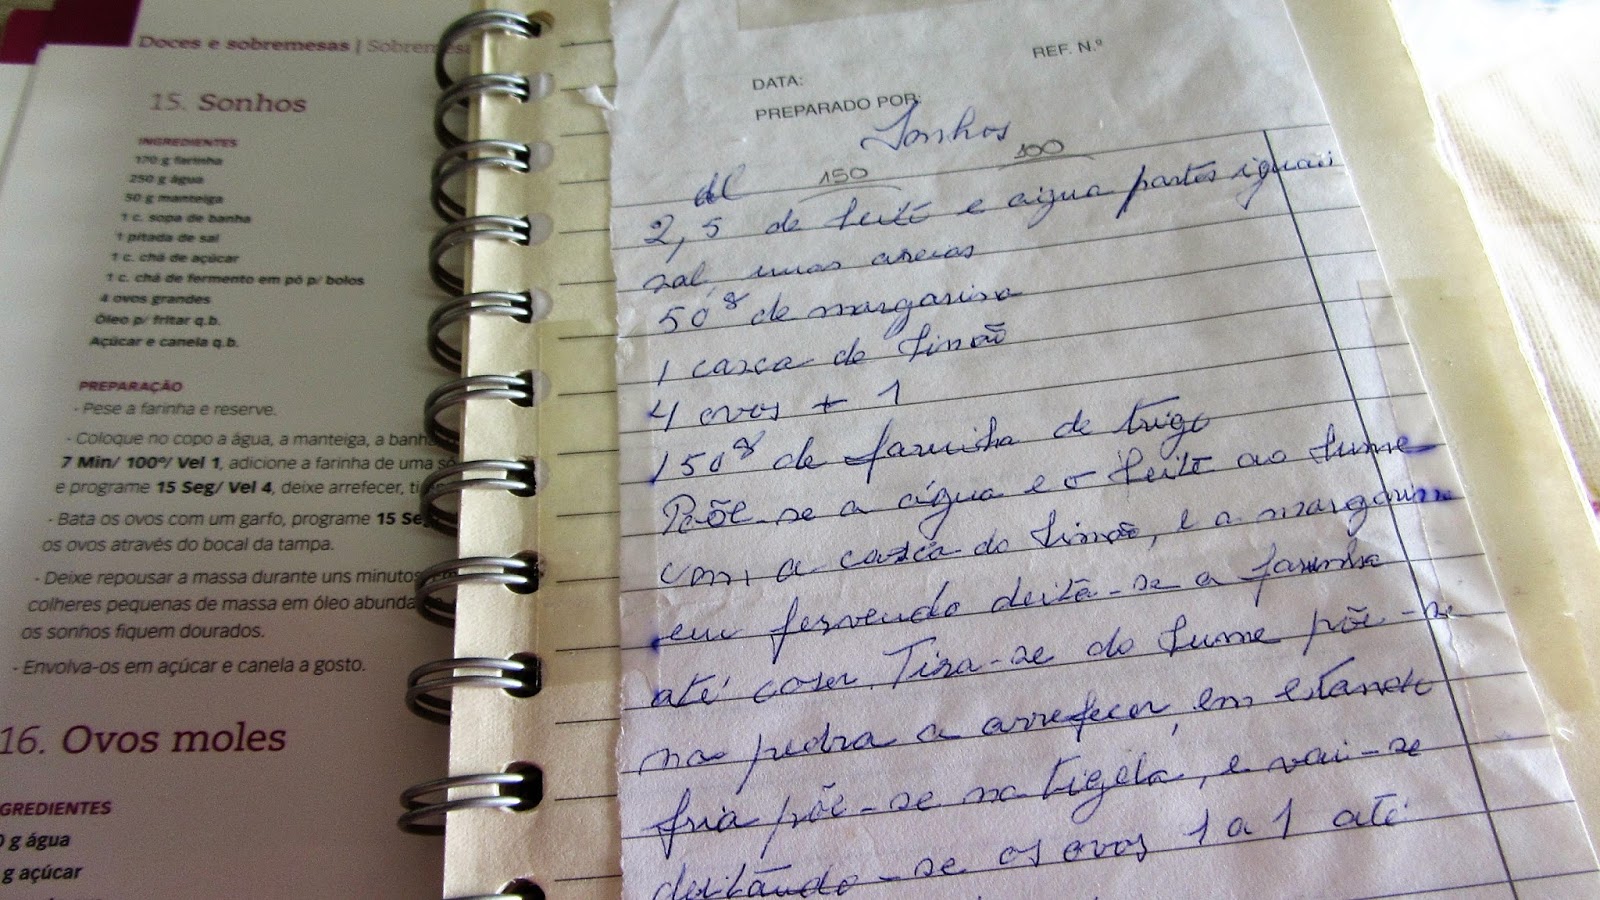 Doces e sobremesas | Sobremesa
15. Sonhos
INGREDIENTES
170 g farinha
250 g água
50 g manteiga
1 c. sopa de banha
1 pitada de sal
1 c. chá de açúcar
1 c. chá de fermento em pó p/ bolos
4 ovos grandes
Óleo p/ fritar q.b.
Açúcar e canela q.b.
PREPARAÇÃO
- Pese a farinha e reserve.
- Coloque no copo a água, a manteiga, a banha
7 Min/ 100º/ Vel 1, adicione a farinha de uma só
e programe 15 Seg/ Vel 4, deixe arrefecer,
- Bata os ovos com um garfo, programe 15 Seg
os ovos através do bocal da tampa.
- Deixe repousar a massa durante uns minutos
colheres pequenas de massa em óleo
os sonhos fiquem dourados.
- Envolva-os em açúcar e canela a gosto.
16. Ovos moles
GREDIENTES
0 g água
g açúcar
REF. N.º
DATA:
PREPARADO POR:
Sonhos
dl 150 100
2,5 de leite e água partes iguais
sal, umas areias
50 g de margarina
1 casca de limão
4 ovos + 1
150 g de farinha de trigo
Põe-se a água e o leite ao lume
com a casca do limão, e a margarina
em fervendo deita-se a farinha
até coser. Tira-se do lume põe-se
na pedra a arrefecer, em estando
fria põe-se na tigela, e vai-se
deitando-se os ovos 1 a 1 até